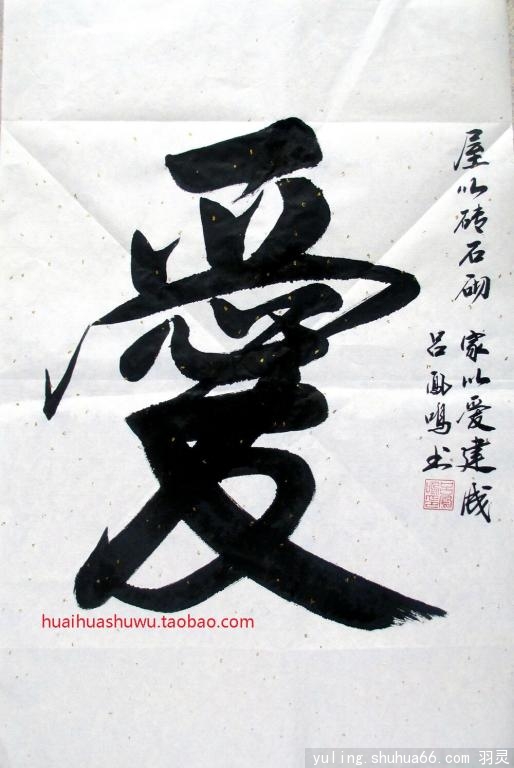 愛
屋以砖石砌 家以爱建成
吕凤鸣书
huaihuashuwu.taobao.com
yuling.shuhua66.com 羽灵